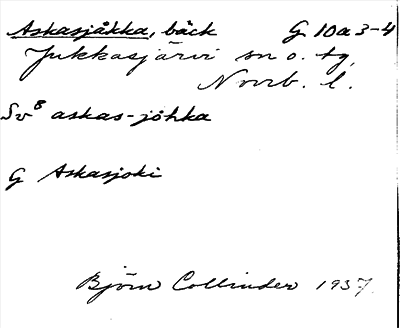 Askasjåkka, bäck G 10a 3-4
Jukkasjärvi sn o. tg,
Norrb. l.
Sv⁸ askas-jåhka
G Askasjoki
Björn Collinder 1937.